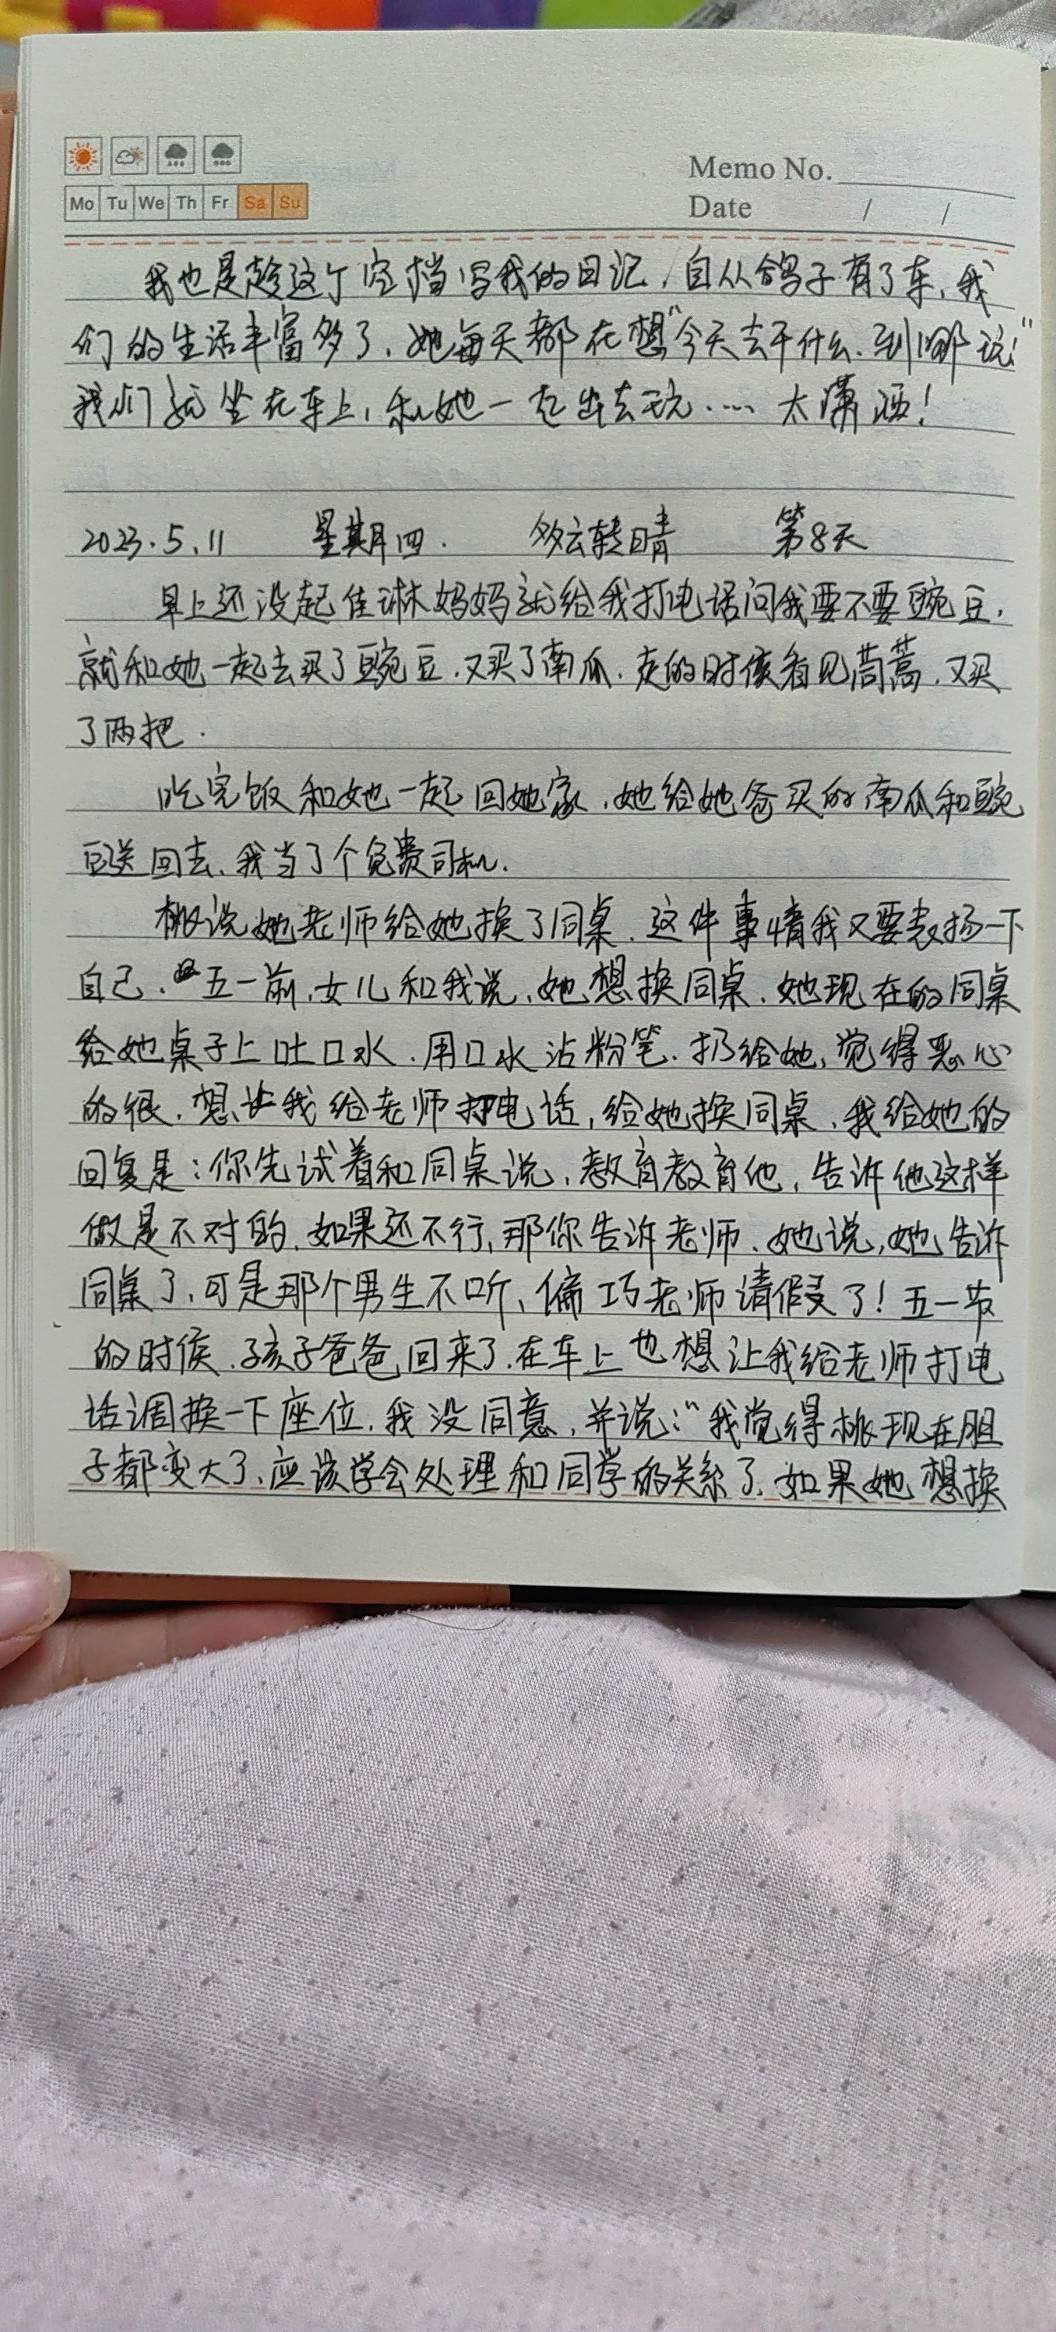 Mo Tu We Th Fr Sa Su
Memo No.
Date / /
我也是趁这个空档写我的日记,自从鸽子有了车,我
们的生活丰富多了,她每天都在想“今天去干什么,到哪玩!”
我们就坐在车上,和她一起出去玩……太潇洒!
2023.5.11 星期四. 多云转晴 第8天
早上还没起佳琳妈妈就给我打电话问我要不要豌豆,
就和她一起去买了豌豆.又买了南瓜.走的时侯看见茼蒿.又买
了两把.
吃完饭和她一起回她家,她给她爸买的南瓜和豌
豆送回去,我当了个免费司机.
说她老师给她换了同桌.这件事情我又要表扬一下
自己.五一前,女儿和我说,她想换同桌.她现在的同桌
给她桌子上吐口水.用口水沾粉笔.扔给她,觉得恶心
的很.想让我给老师打电话,给她换同桌.我给她的
回复是:你先试着和同桌说,教育教育他,告诉他这样
做是不对的.如果还不行,那你告诉老师.她说,她告诉
同桌了,可是那个男生不听,偏巧老师请假了!五一节
的时侯.孩子爸爸回来了.在车上也想让我给老师打电
话调换一下座位.我没同意,并说:“我觉得现在胆
子都变大了,应该学会处理和同学的关系了.如果她想换